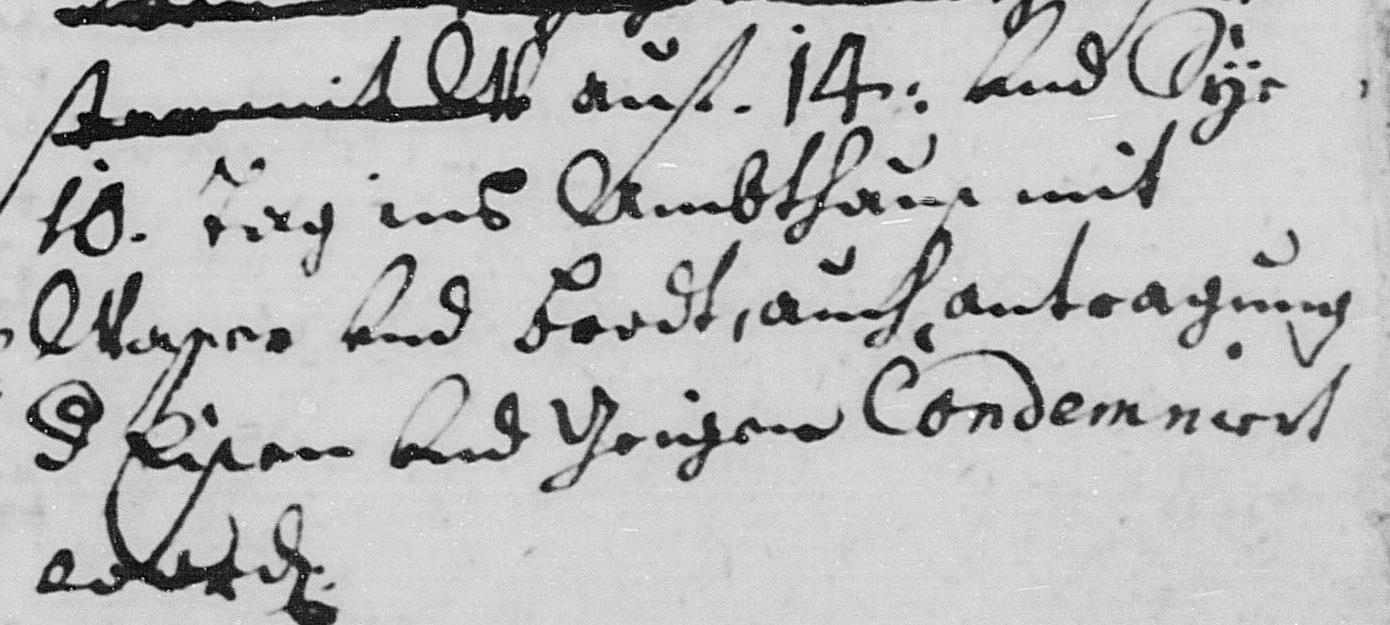 auf 14: und Sÿe
10. tag ins Ambthaus mit
Wasser und brodt, auch antragung
d Eisen und Geigen Condemnirt